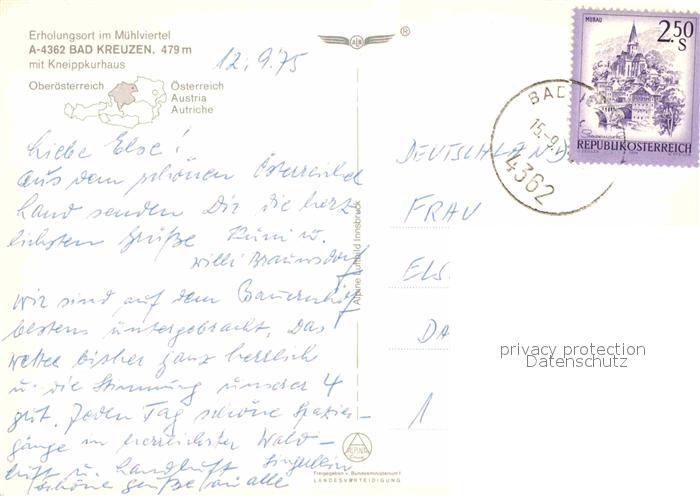 Erholungsort im Mühlviertel
A-4362 BAD KREUZEN. 479 m
mit Kneippkurhaus
Oberösterreich
Österreich
Austria
Autriche
12.9.75
Liebe Else!
Aus dem schönen Österreicher
Land senden Dir die herz-
lichsten Grüße Kuni u.
Willi Braunsdorf
Wir sind auf dem Bauernhof
bestens untergebracht, Das
Wetter bisher ganz herrlich
u. die Stimmung unserer 4
gut. Jeden Tag schöne Spazier-
gänge in herrlichster Wald-
luft u. Landluft
schöne Grüße an alle
Alpine Luftbild Innsbruck
ALPINE
Freigegeben v. Bundesministerium f.
LANDESVERTEIDIGUNG
MURAU
2.50
S
REPUBLIK ÖSTERREICH
BAD
15.-9.
4362
DEUTSCHLAND
FRAU
ELS
DA
1
privacy protection
Datenschutz